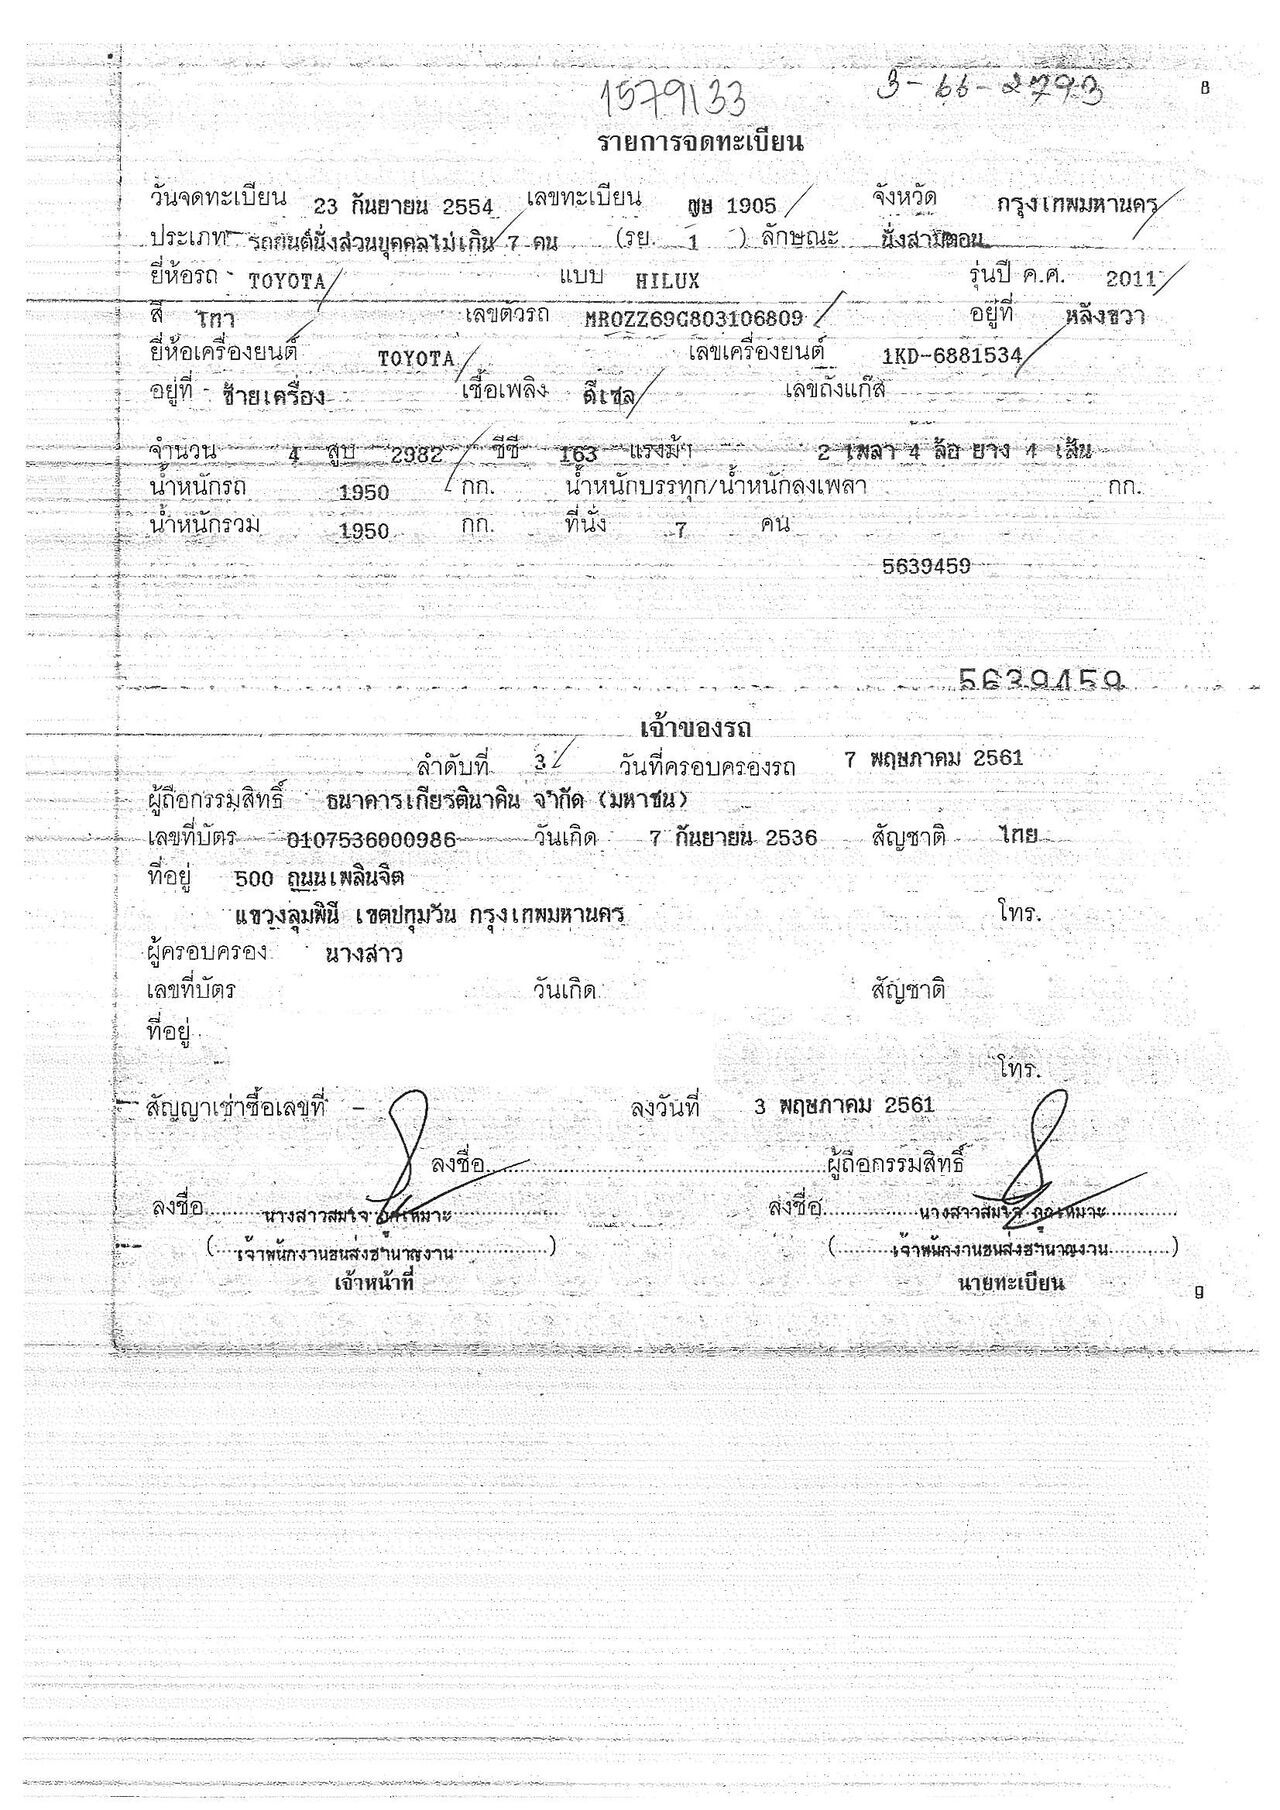 1579133 3-66-2793 8
รายการจดทะเบียน
วันจดทะเบียน 23 กันยายน 2554 เลขทะเบียน 1905 จังหวัด กรุงเทพมหานคร
ประเภท รถยนต์นั่งส่วนบุคคลไม่เกิน 7 คน (รย. 1 ) ลักษณะ นั่งสามตอน
ยี่ห้อรถ TOYOTA แบบ HILUX รุ่นปี ค.ศ. 2011
สี เทา เลขตัวรถ MR0ZZ69G803106809 อยู่ที่ หลังขวา
ยี่ห้อเครื่องยนต์ TOYOTA เลขเครื่องยนต์ 1KD-6881534
อยู่ที่ ซ้ายเครื่อง เชื้อเพลิง ดีเซล เลขถังแก๊ส
จำนวน 4 สูบ 2982 ซีซี 163 แรงม้า 2 เพลา 4 ล้อ ยาง 4 เส้น
น้ำหนักรถ 1950 กก. น้ำหนักบรรทุก/น้ำหนักลงเพลา กก.
น้ำหนักรวม 1950 กก. ที่นั่ง 7 คน
5639459
5639459
เจ้าของรถ
ลำดับที่ 3 วันที่ครอบครองรถ 7 พฤษภาคม 2561
ผู้ถือกรรมสิทธิ์ ธนาคารเกียรตินาคิน จำกัด (มหาชน)
เลขที่บัตร 0107536000986 วันเกิด 7 กันยายน 2536 สัญชาติ ไทย
ที่อยู่ 500 ถนนเพลินจิต
แขวงลุมพินี เขตปทุมวัน กรุงเทพมหานคร โทร.
ผู้ครอบครอง นางสาว
เลขที่บัตร วันเกิด สัญชาติ
ที่อยู่
โทร.
สัญญาเช่าซื้อเลขที่ - ลงวันที่ 3 พฤษภาคม 2561
ลงชื่อ ผู้ถือกรรมสิทธิ์
ลงชื่อ นางสาวสมใจ ลงชื่อ นางสาวสมใจ
(เจ้าพนักงานขนส่งชำนาญงาน) (เจ้าพนักงานขนส่งชำนาญงาน)
เจ้าหน้าที่ นายทะเบียน
9